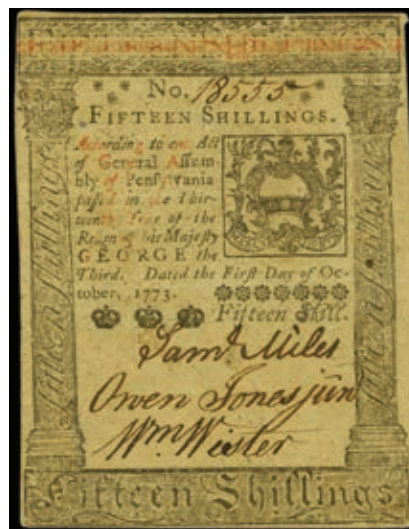 No. 18555
FIFTEEN SHILLINGS.
According to an Act
of General Assem-
bly of Pensylvania
passed in the Thir-
teenth Year of the
Reign of his Majesty
GEORGE the
Third. Dated the First Day of Oc-
tober, 1773.
Fifteen Shill.
Saml. Miles
Owen Jones jun
Wm. Wister
Fifteen Shillings
Fifteen Shillings
Fifteen Shillings